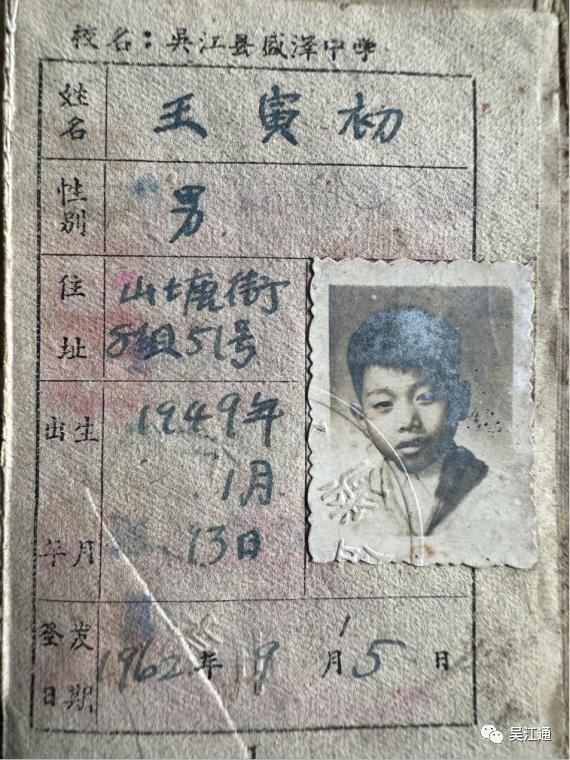 校名：吳江县盛泽中学
姓名 王寅初
性别 男
住址 山塘街
8组51号
出生 1949年
1月
年月 13日
签发 1962年9月5日
日期
吴江通